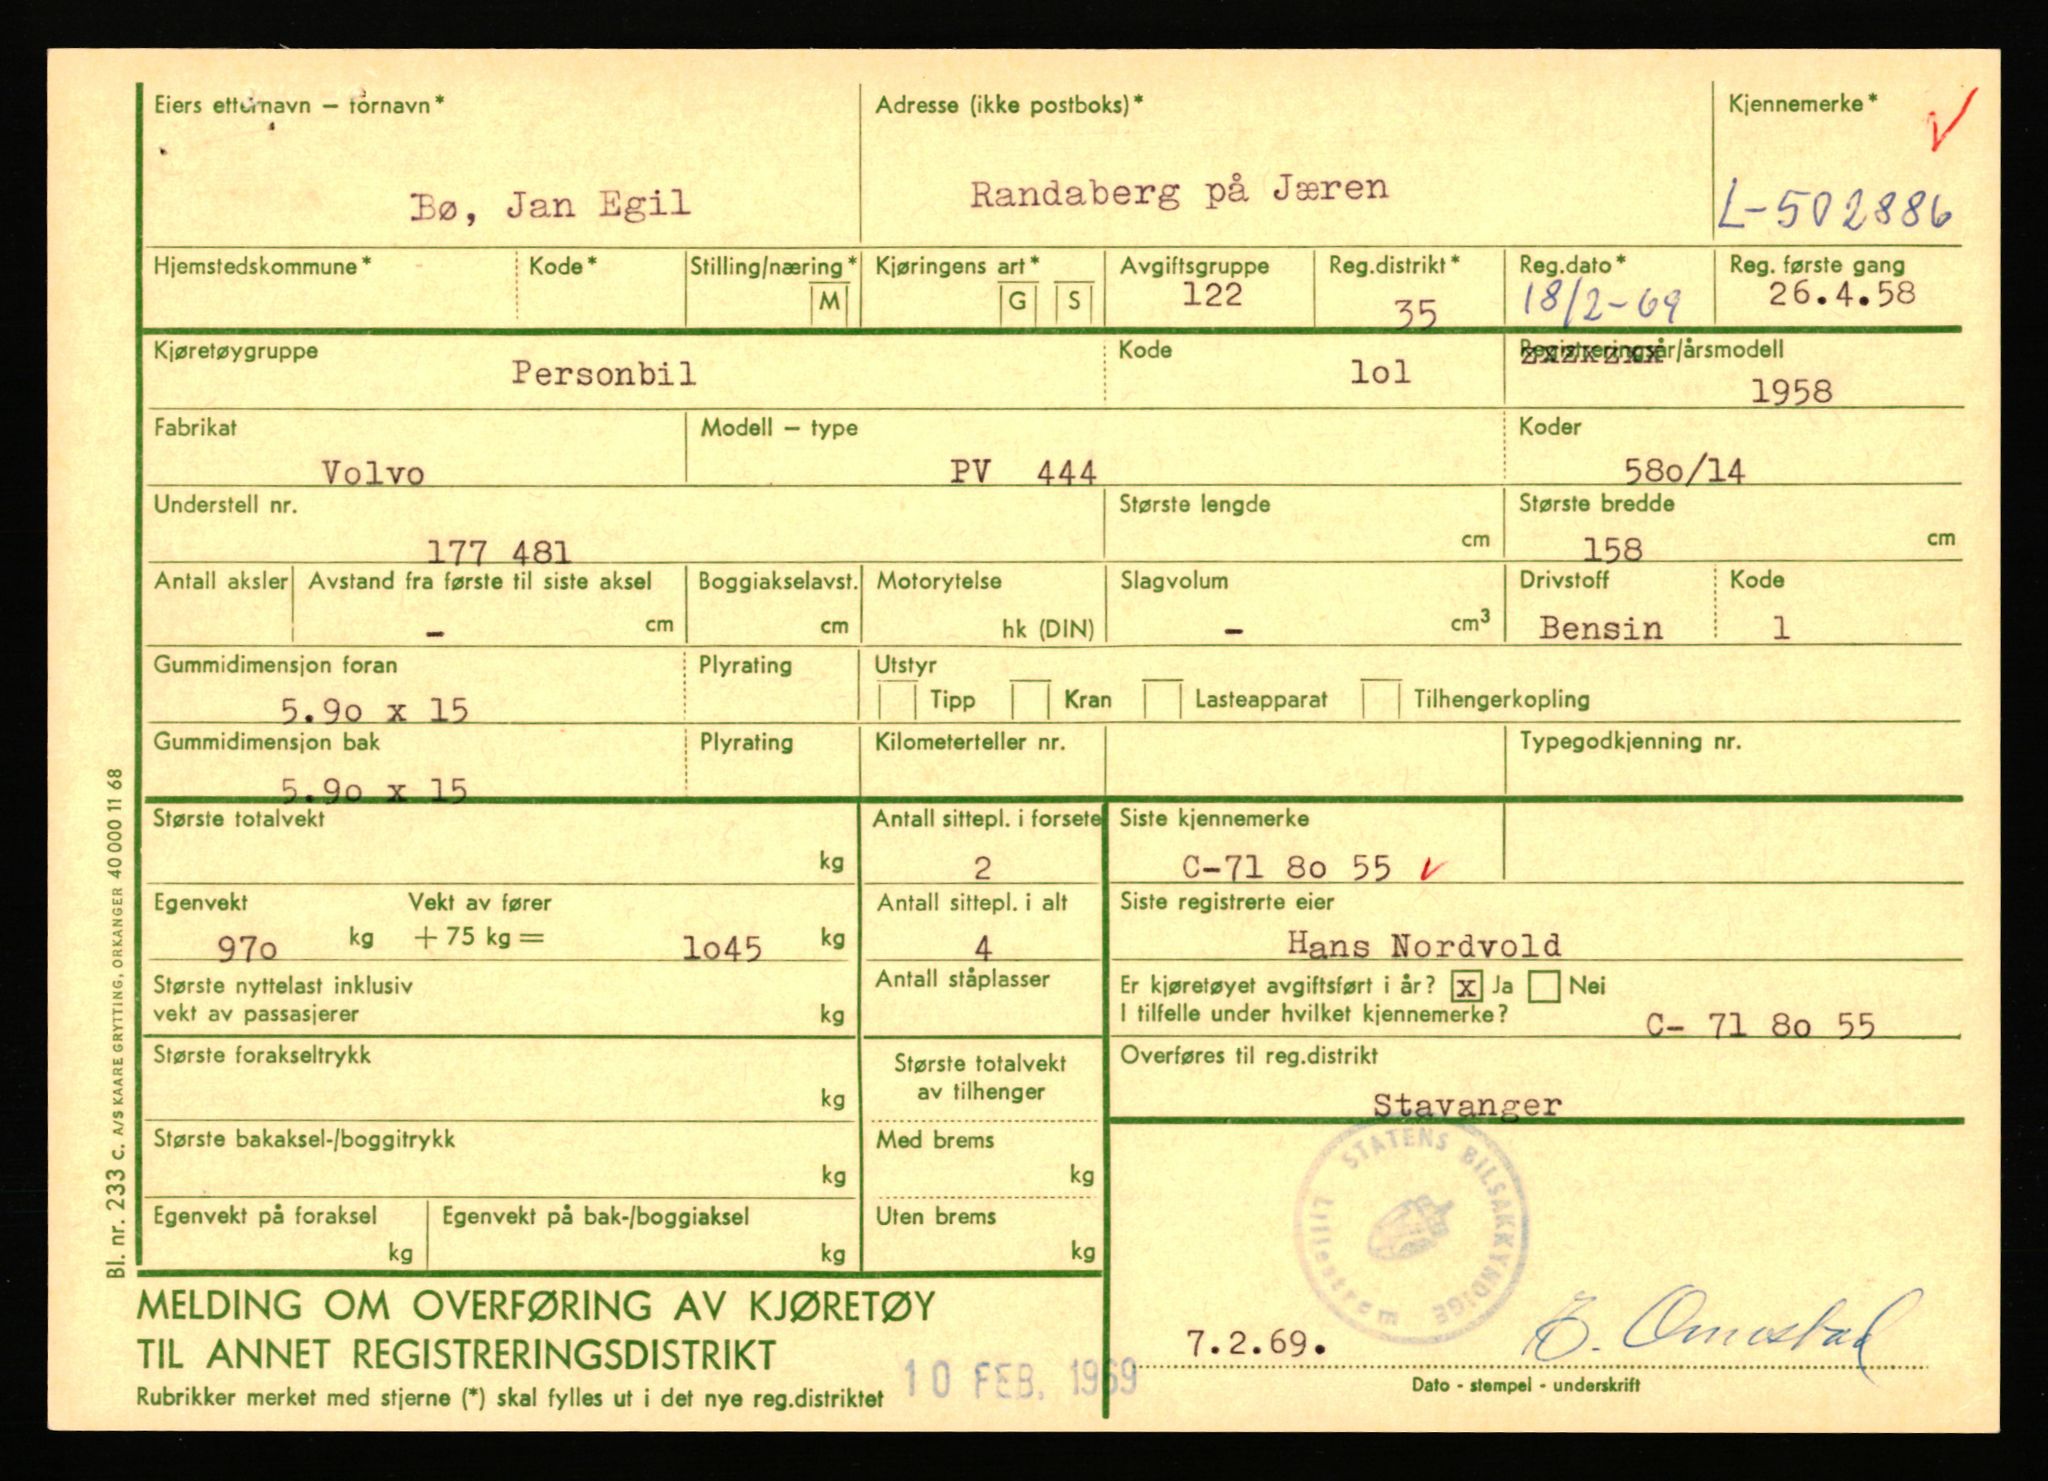 Eiers etternavn – fornavn*
Adresse (ikke postboks)*
Kjennemerke*
Bø, Jan Egil
Randaberg på Jæren
L-502886
Hjemstedskommune*
Kode*
Stilling/næring*
M
Kjøringens art*
G
S
Avgiftsgruppe
122
Reg.distrikt*
35
Reg.dato*
18/2-69
Reg. første gang
26.4.58
Kjøretøygruppe
Personbil
Kode
lol
Registreringsår/årsmodell
1958
Fabrikat
Volvo
Modell – type
PV 444
Koder
58o/14
Understell nr.
177 481
Største lengde
cm
Største bredde
158
cm
Antall aksler
Avstand fra første til siste aksel
– cm
Boggiakselavst.
cm
Motorytelse
hk (DIN)
Slagvolum
– cm³
Drivstoff
Bensin
Kode
1
Gummidimensjon foran
5.9o x 15
Plyrating
Utstyr
Tipp
Kran
Lasteapparat
Tilhengerkopling
Gummidimensjon bak
5.9o x 15
Plyrating
Kilometerteller nr.
Typegodkjenning nr.
Største totalvekt
kg
Antall sittepl. i forsete
2
Siste kjennemerke
C-71 8o 55
Egenvekt
97o kg
Vekt av fører
+ 75 kg = lo45 kg
Antall sittepl. i alt
4
Siste registrerte eier
Hans Nordvold
Største nyttelast inklusiv
vekt av passasjerer
kg
Antall ståplasser
Er kjøretøyet avgiftsført i år? x Ja Nei
I tilfelle under hvilket kjennemerke?
C- 71 8o 55
Største forakseltrykk
kg
Største totalvekt
av tilhenger
Overføres til reg.distrikt
Stavanger
Største bakaksel-/boggitrykk
kg
Med brems
kg
Egenvekt på foraksel
kg
Egenvekt på bak-/boggiaksel
kg
Uten brems
kg
STATENS BILSAKKYNDIGE
Lillestrøm
MELDING OM OVERFØRING AV KJØRETØY
TIL ANNET REGISTRERINGSDISTRIKT
Rubrikker merket med stjerne (*) skal fylles ut i det nye reg.distriktet
10 FEB. 1969
7.2.69.
E. Omestad
Dato - stempel - underskrift
Bl. nr. 233 c. A/S KAARE GRYTTING, ORKANGER 40 000 11 68